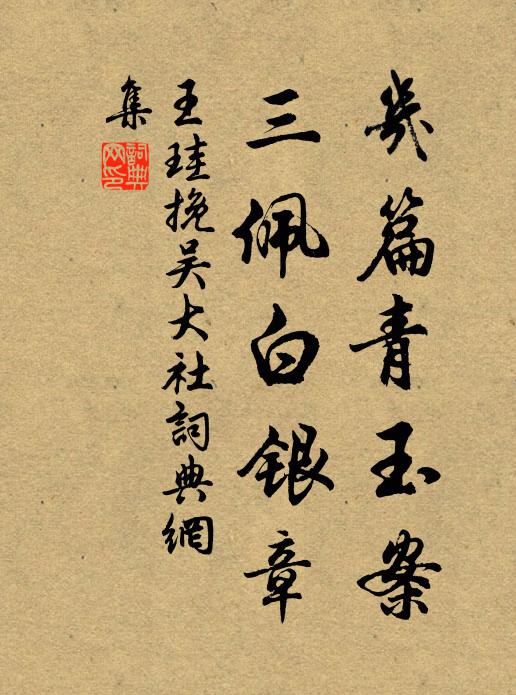 幾篇青玉案
三佩白銀章
王珪挽吳大社詞典網
集
詞典
网印